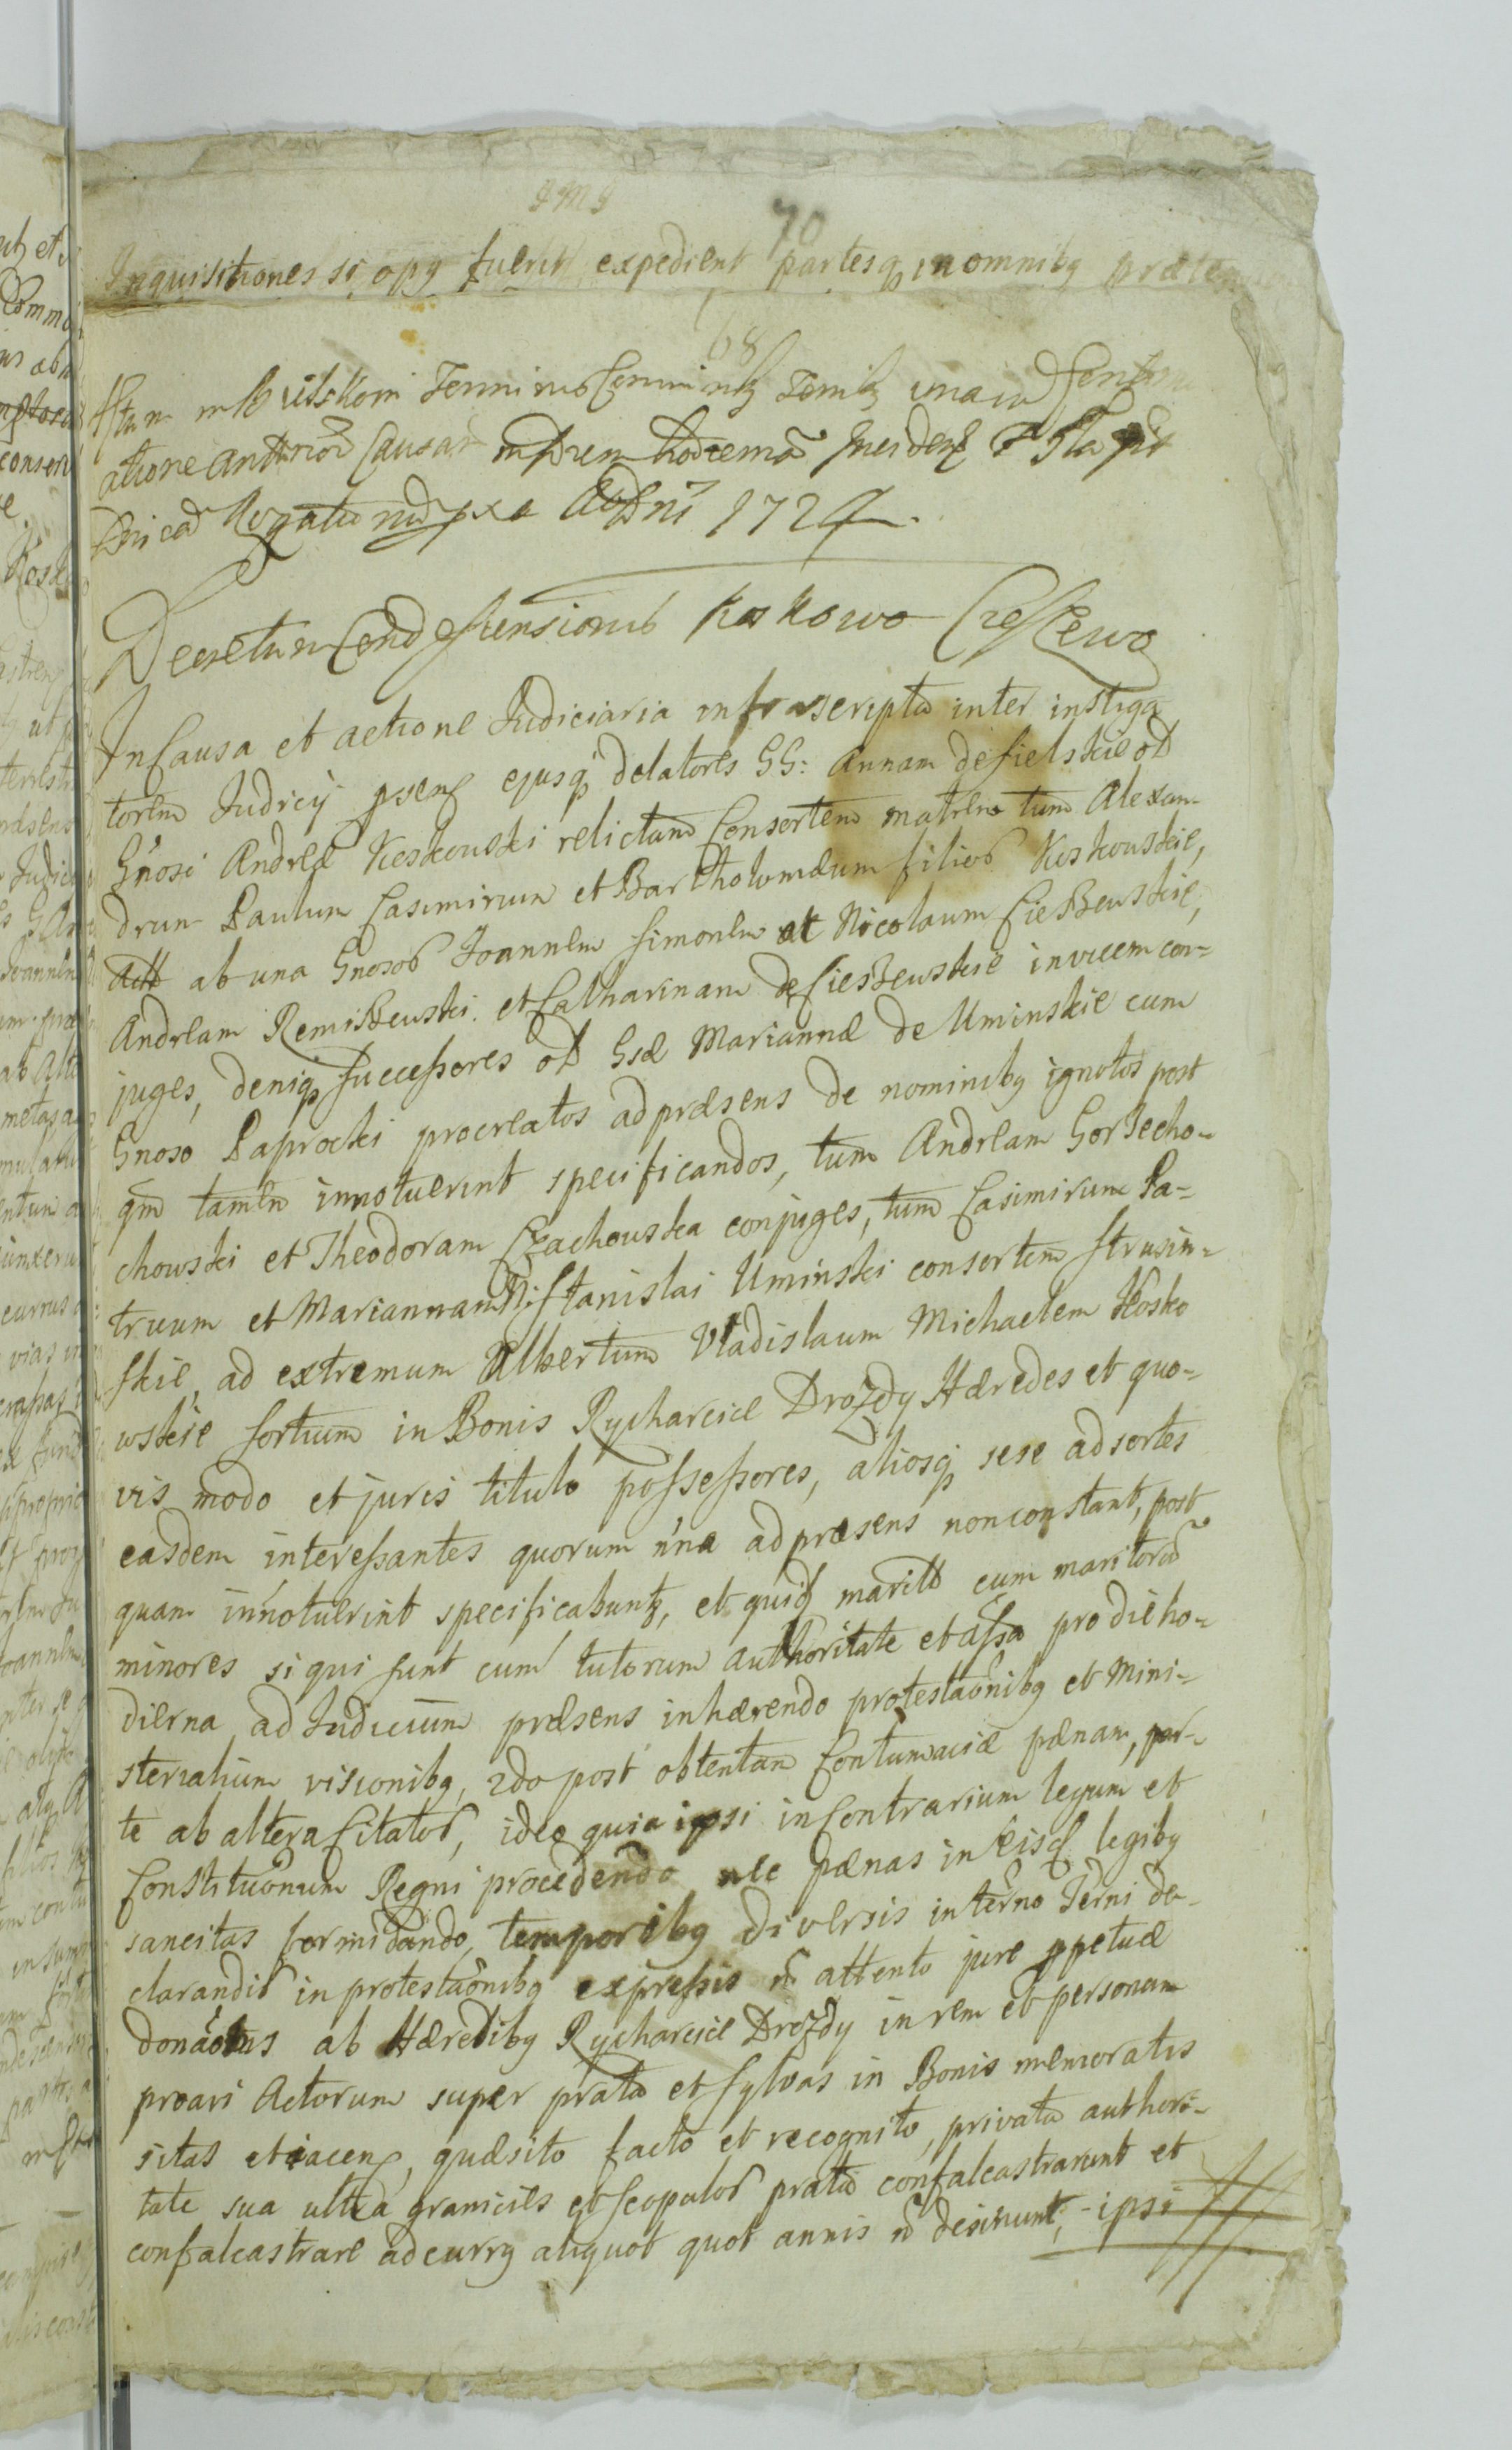 J M J
70
Inquisitiones si opq fuerit expedient partesq in omnibq
68
Termino
Causar
Dnicã Rogationũ AD Dni 1724.
Decretum Condescensionis Koskowo
In Causa et actione Judiciaria infrascripta inter instiga
torem Judicij psens ejusq delatores GG: Annam de Sielskie oD
Gnosi Andreæ Koskouski relictam Consortem matrem tum Alexan-
drum Paulum Casimirum et Bartholomæum filios Koskouskie,
ab una Gnosos Joannem Simonem at Nicolaum Cieszeuskie,
Andream Remiszeuski et Catharinam de Cieszeuskie invicem con=
juges, deniq Successores oD Gsæ Mariannæ de Uminskie cum
Gnoso Paprocki procreatos ad præsens de nominibq ignotos post
qm tamen innotuerint specificandos, tum Andream Gorzecho-
chowski et Theodoram Czachouska conjuges, tum Casimirum Pa=
truum et Mariannam Stanislai Uminski consortem Strusin=
skie, ad extremum Albertum Vladislaum Michaelem Kosko
wskie Sortium in Bonis Rycharcice Drozdy Hæredes et quo=
vis modo et juris titulo possessores, aliosq sese ad sortes
easdem interessantes quorum n'na ad præsens non constant, post
quam in'notuerint specificabuntq, et quid maritt cum maritorũ
minores si qui sunt cum tutorum authoritate et assa pro die ho=
dierna ad Judicium præsens inhærendo protestaõnibq et Mini=
sterialium visionibq, 2do post obtentam Contumaciæ pænam, par-
te ab altera Citatos, ideo quia ipsi in Contrarium legum et
Constituõnum Regni procedendo nec pænas in eisd legibq
sancitas formidando, temporibq diversis in termo Terni de-
clarandis in protestaõnibq expressis nõ attento jure ppetuæ
donaõnis ab Hæredibq Rycharcice Drozdy in rem et personam
proavi Actorum super prata et sylvas in Bonis memoratis
sitas et iacens, quæsito facto et recognito, privata authori-
tate sua ultra granicies et scopulos prata confalcastrarunt et
confalcastrare ad currq aliquot quot annis nõ desinunt, - ipsi